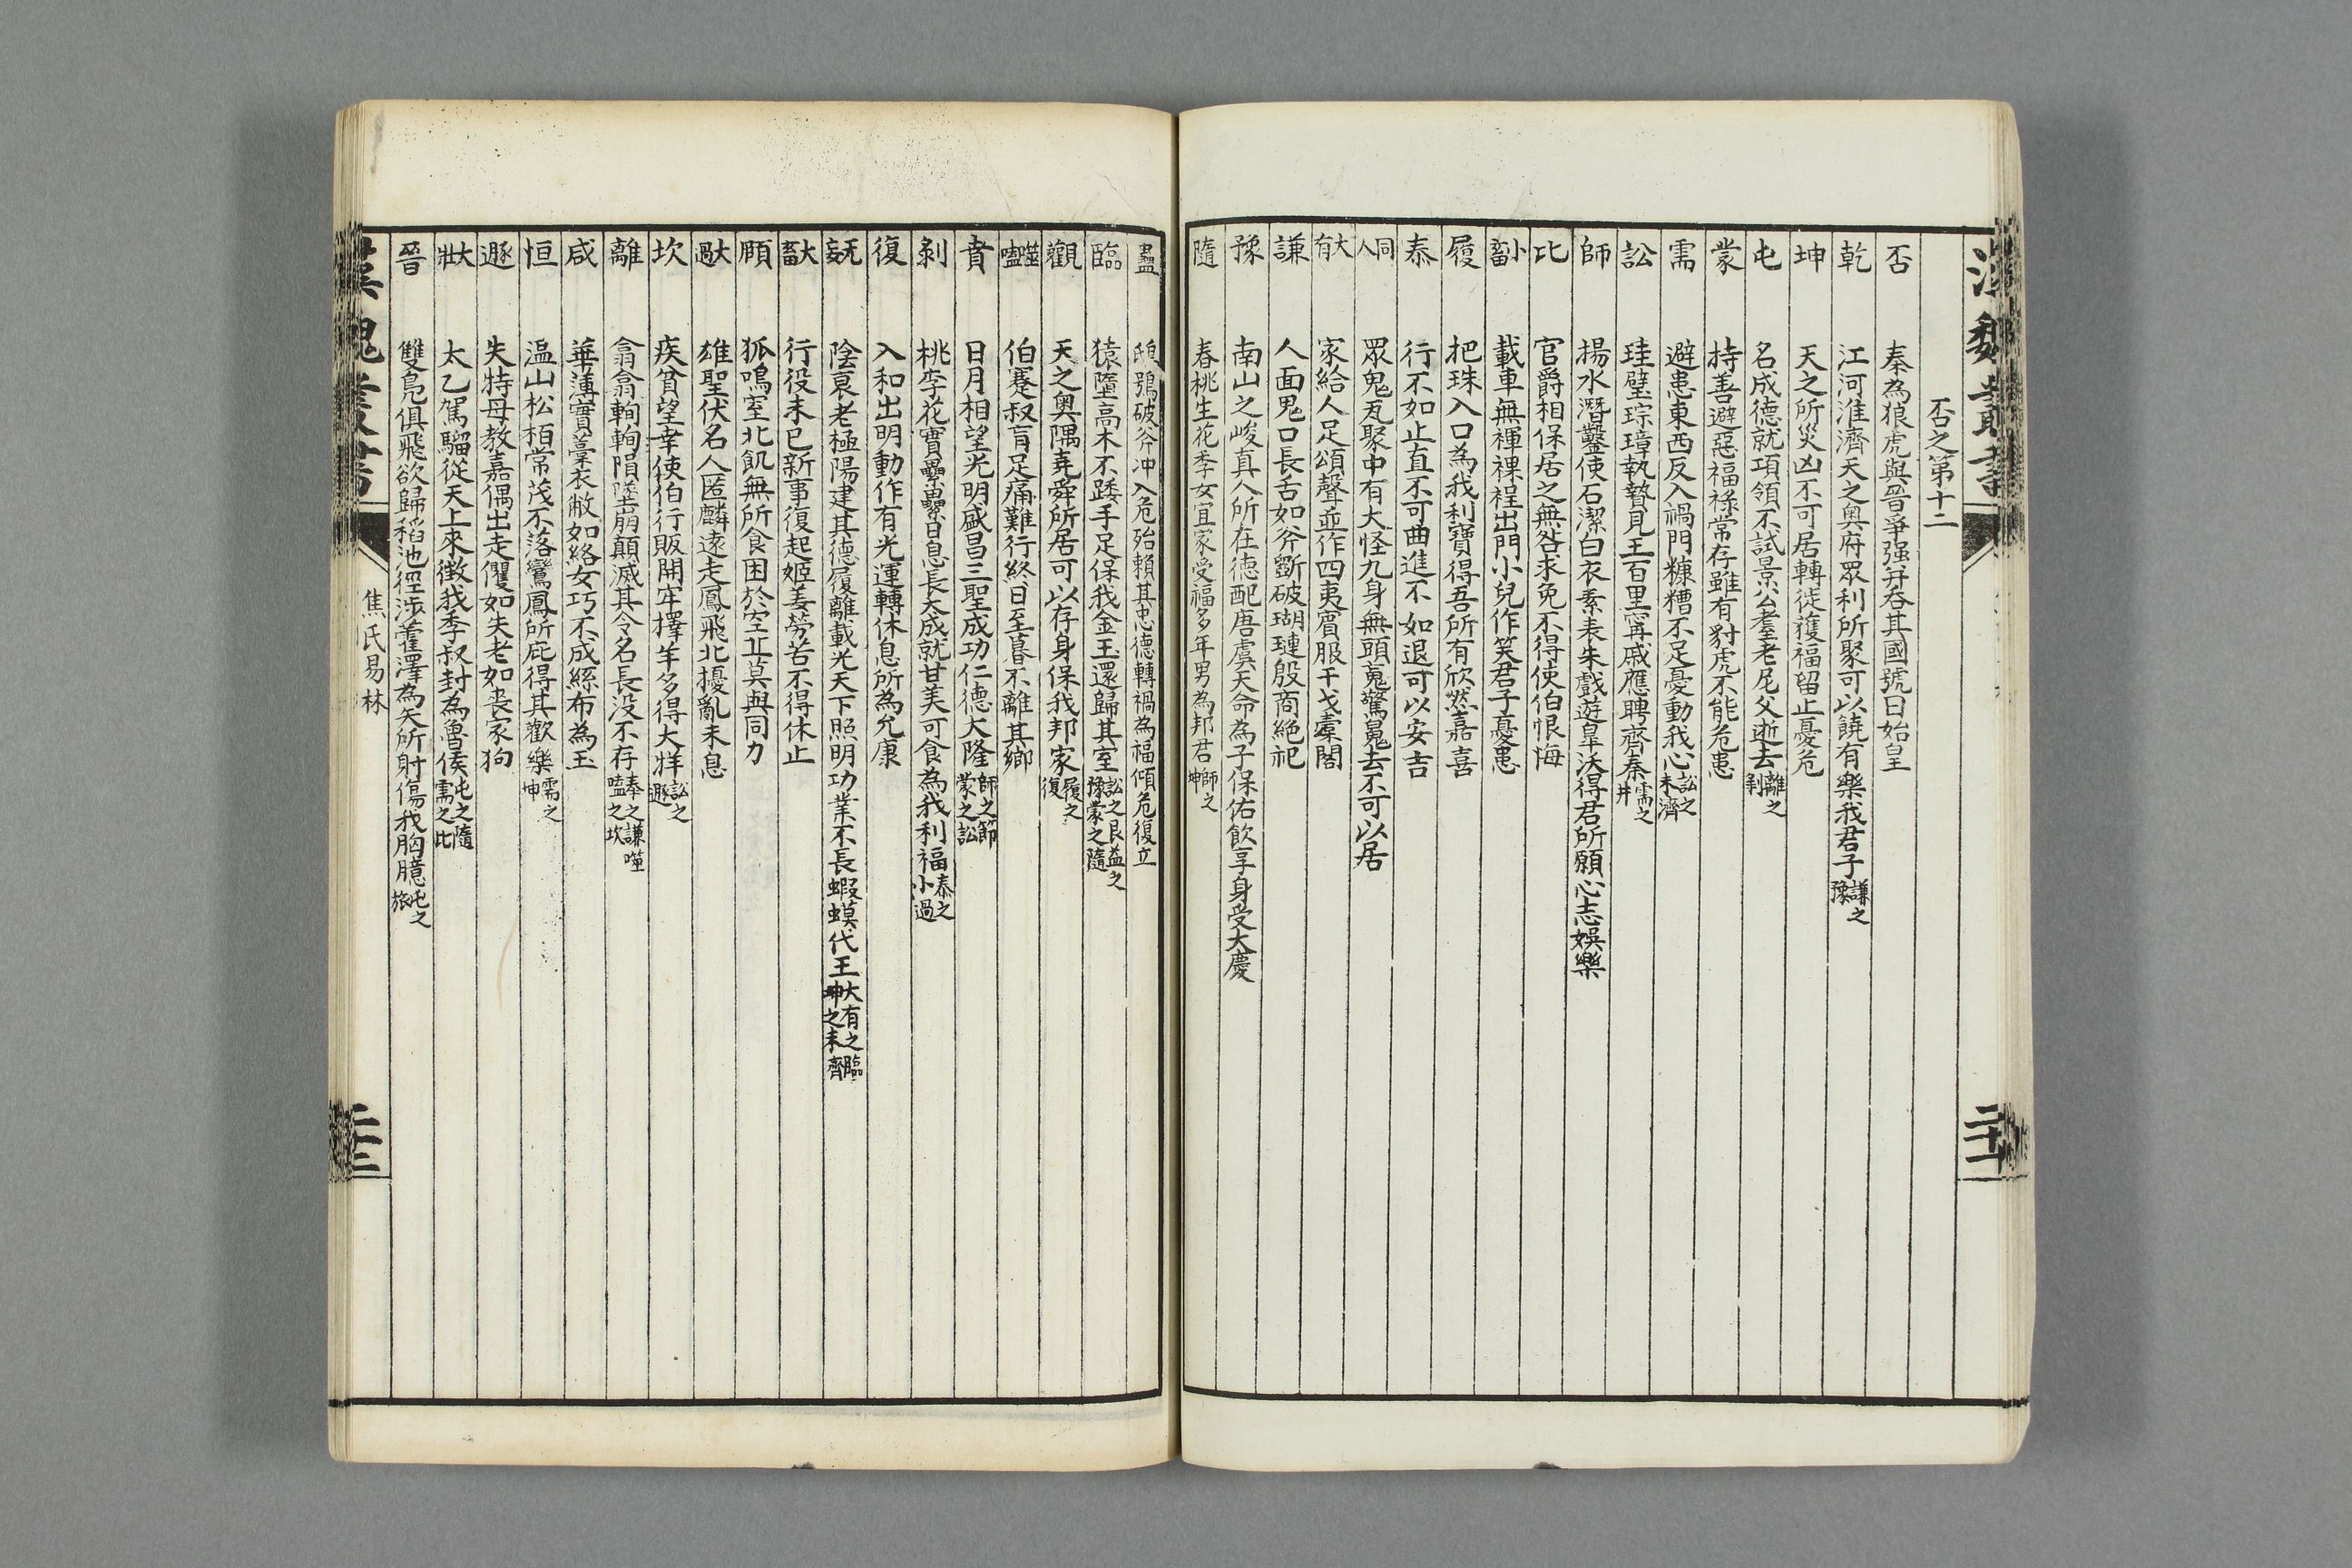 漢魏叢書
二十二
否之第十二
否 秦為狼虎與晉爭强并吞其國號曰始皇
乾 江河淮濟天之奥府眾利所聚可以饒有樂我君子謙之豫
坤 天之所災凶不可居轉徙獲福留止憂危
屯 名成德就項領不試景公耋老尼父逝去離之剝
蒙 持善避惡福祿常存雖有豺虎不能危患
需 避患東西反入禍門糠糟不足憂動我心訟之未濟
訟 珪璧琮璋執贄見王百里甯戚應聘齊秦需之井
師 揚水潛鑿使石潔白衣素表朱戲遊皐沃得君所願心志娛樂
比 官爵相保居之無咎求免不得使伯恨悔
小畜 載車無褌裸裎出門小兒作笑君子憂患
履 把珠入口為我利寶得吾所有欣然嘉喜
泰 行不如止直不可曲進不如退可以安吉
同人 眾鬼瓦聚中有大怪九身無頭魂驚魄去不可以居
大有 家給人足頌聲並作四夷賓服干戈櫜閣
謙 人面鬼口長舌如斧斲破瑚璉殷商絶祀
豫 南山之峻真人所在德配唐虞天命為子保佑飲享身受大慶
隨 春桃生花季女宜家受福多年男為邦君師之坤
蠱 鴟鴞破斧冲入危殆賴其忠德轉禍為福傾危復立
臨 猿墮高木不踒手足保我金玉還歸其室訟之艮益之豫蒙之隨
觀 天之奥隅堯舜所居可以存身保我邦家履之復
噬嗑 伯蹇叔盲足痛難行終日至暮不離其鄉
賁 日月相望光明盛昌三聖成功仁德大隆師之節蒙之訟
剝 桃李花實纍纍日息長大成就甘美可食為我利福泰之小過
復 入和出明動作有光運轉休息所為允康
无妄 陰衰老極陽建其德履離載光天下照明功業不長蝦蟆代王大有之臨坤之未濟
大畜 行役未已新事復起姬姜勞苦不得休止
頤 狐鳴室北飢無所食困於空丘莫與同力
大過 雄聖伏名人匿麟遠走鳳飛北擾亂未息
坎 疾貧望幸使伯行販開牢擇羊多得大牂訟之遯
離 翕翕輷輷隕墜崩顛滅其令名長沒不存泰之謙噬嗑之坎
咸 華薄實槀衣敝如絡女巧不成絲布為玉
恒 温山松栢常茂不落鸞鳳所庇得其歡樂需之坤
遯 失特母教嘉偶出走懼如失老如喪家狗
大壯 太乙駕騮從天上來徵我季叔封為魯侯屯之隨需之比
晉 雙鳬俱飛欲歸稻池徑涉雚澤為矢所射傷我胸臆屯之旅
漢魏叢書
焦氏易林
二十二